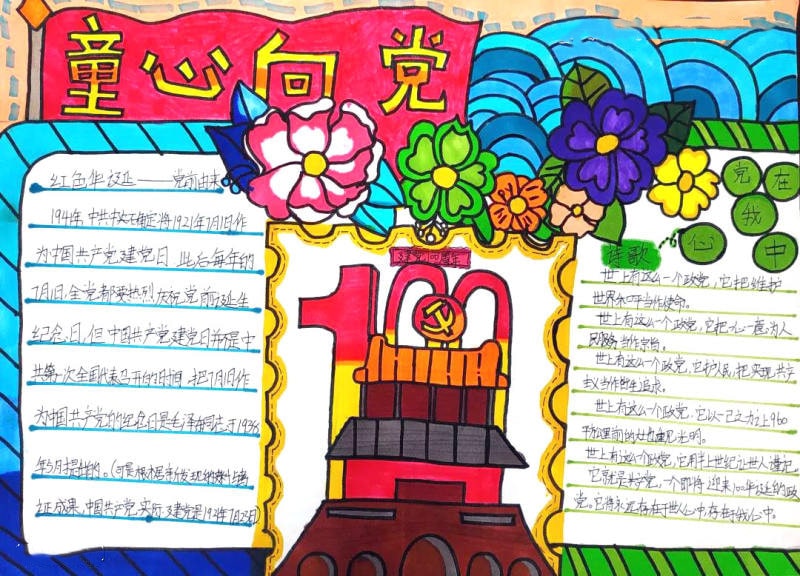 童心向党
红色华诞——党前由来
1941年,中共中央确定将1921年7月1日作
为中国共产党建党日,此后每年的
7月1日,全党都要热烈庆祝党前诞生
纪念日,但中国共产党建党日并不是中
共第一次全国代表召开的时间,把7月1日作
为中国共产党的纪念日是毛泽东同志于1938
年5月提出的。(可是根据新发现的
证成果,中国共产党实际建党是1921年7月23日)
建党周年
100
党在
我
心中
诗歌
世上有这么一个政党,它把维护
世界和平当作使命。
世上有这么一个政党,它把一心一意为人
民服务当作宗旨。
世上有这么一个政党,它护人民,把实现共产
主义当作毕生追求。
世上有这么一个政党,它以一己之力让960
平方里前的土地重见光明。
世上有这么一个政党,它用半世纪让世人
它就是共产党,一个即将迎来100年华诞的政
党。它将永远存在于世人心中,存在于我心中。